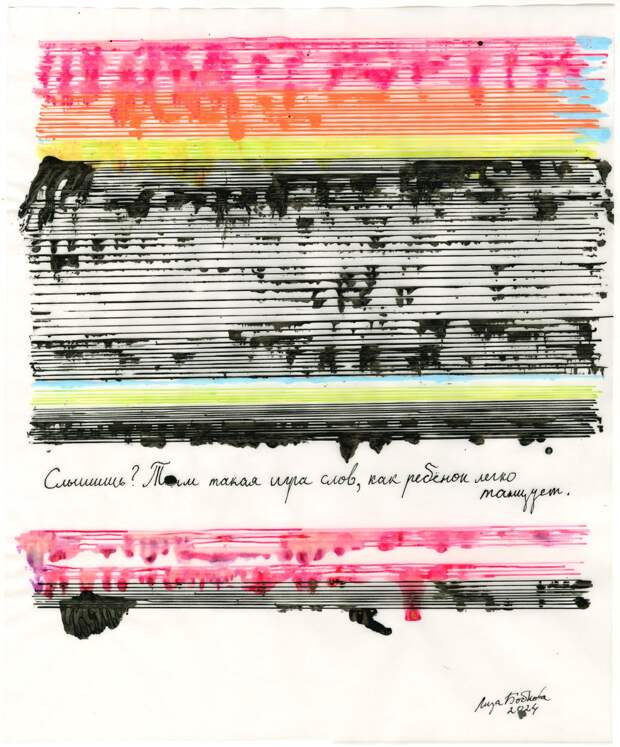 Слышишь? Там такая игра слов, как ребёнок легко
танцует.
Лиза Бобкова
2024